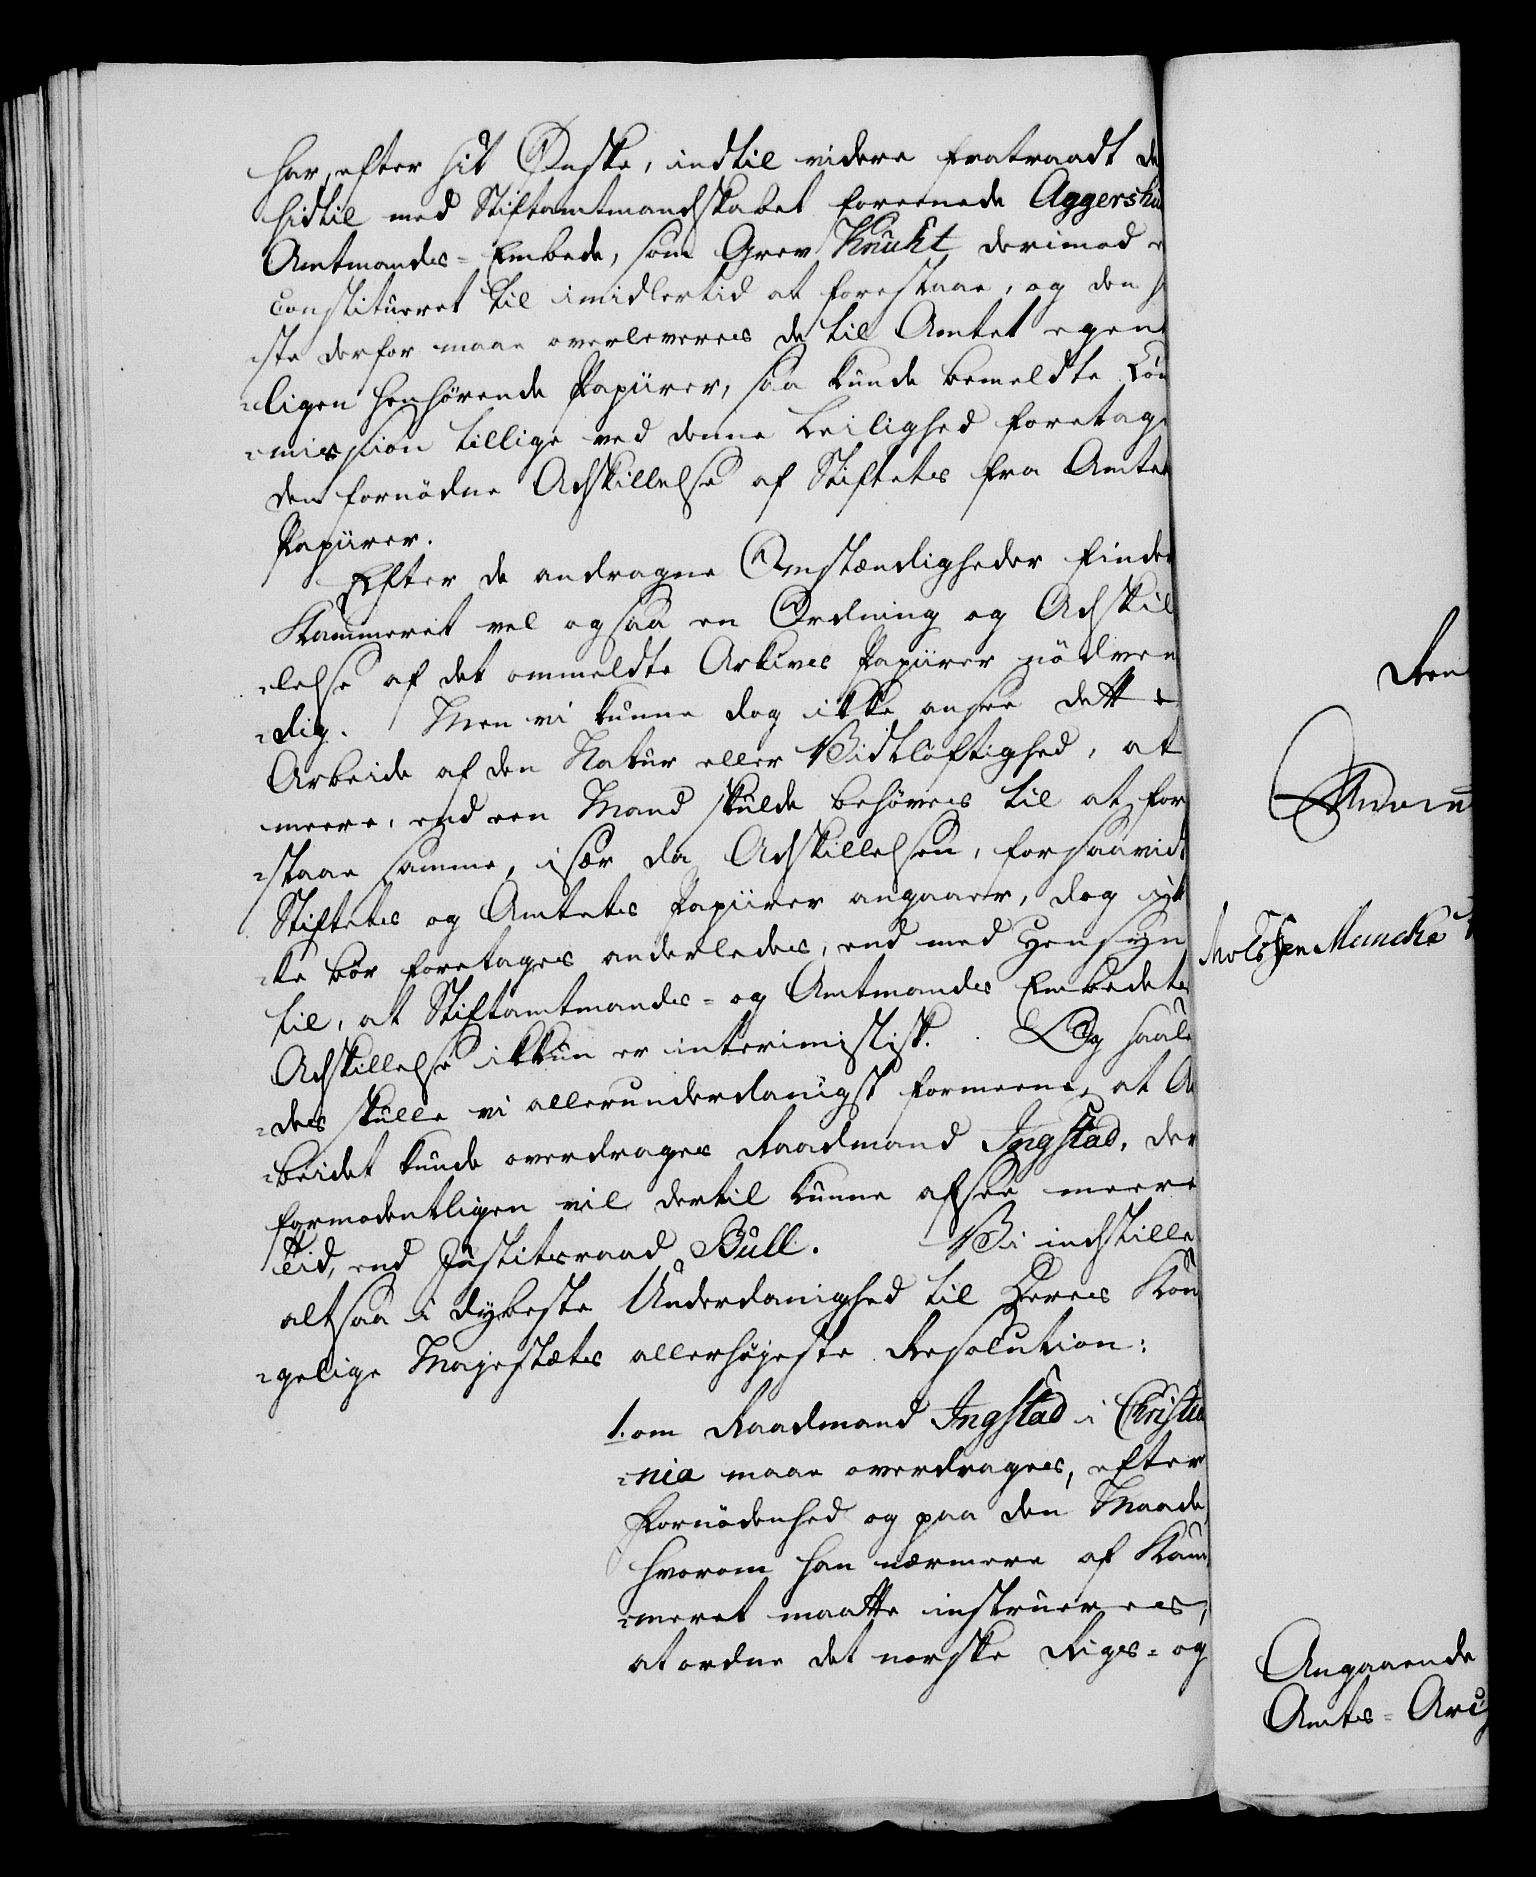 har, efter sit Ønske, indtil videre fratraadt de
hidtil med Stiftamtmandskabet foreenede Aggershu
Amtmands-Embede, som Grev Knuht derimod e
constitueret til imidlertid at forestaae, og den
ste derfor maae overleveres de til Amtet egent
ligen henhørende Papiirer, saa kunde bemeldte Com
mission tillige ved denne Leilighed foretage
den fornødne Adskillelse af Stiftets fra Amtets
Papiirer.
Efter de andragne Omstændigheder finder
Kammeret vel ogsaa en Ordning og Adskil
lelse af det ommeldte Arkivs Papiirer nødven
dig. Men vi kunne dog ikke ansee dette
Arbeide af den Natur eller Vidtløftighed, at
meere, end een Mand skulde behøves til at for
staae samme, især da Adskillelsen, forsaavidt
Stiftets og Amtets Papiirer angaaer, dog ik
ke bør foretages anderledes, end med Hensyn
til, at Stiftamtmands- og Amtmands Embedets
Adskillelse ikkun er interimistisk. Og saale
des skulle vi allerunderdanigst formeene, at Ar
beidet kunde overdrages Raadmand Ingstad, der
formodentligen vil dertil kunne afsee meere
Tid, end Justitsraad Bull. Vi indstille
altsaa i dybeste Underdanighed til Deres Kon
gelige Majestæts allerhøjeste Resolution:
1. om Raadmand Ingstad i Christia
nia maae overdrages, efter
Fornødenhed og paa den Maade,
hvorom han nærmere af Kam
meret maatte instrueres,
at ordne det norske Rigs- og
Ren
Moltke Jen Muncke
Angaaende
Amts-Arch